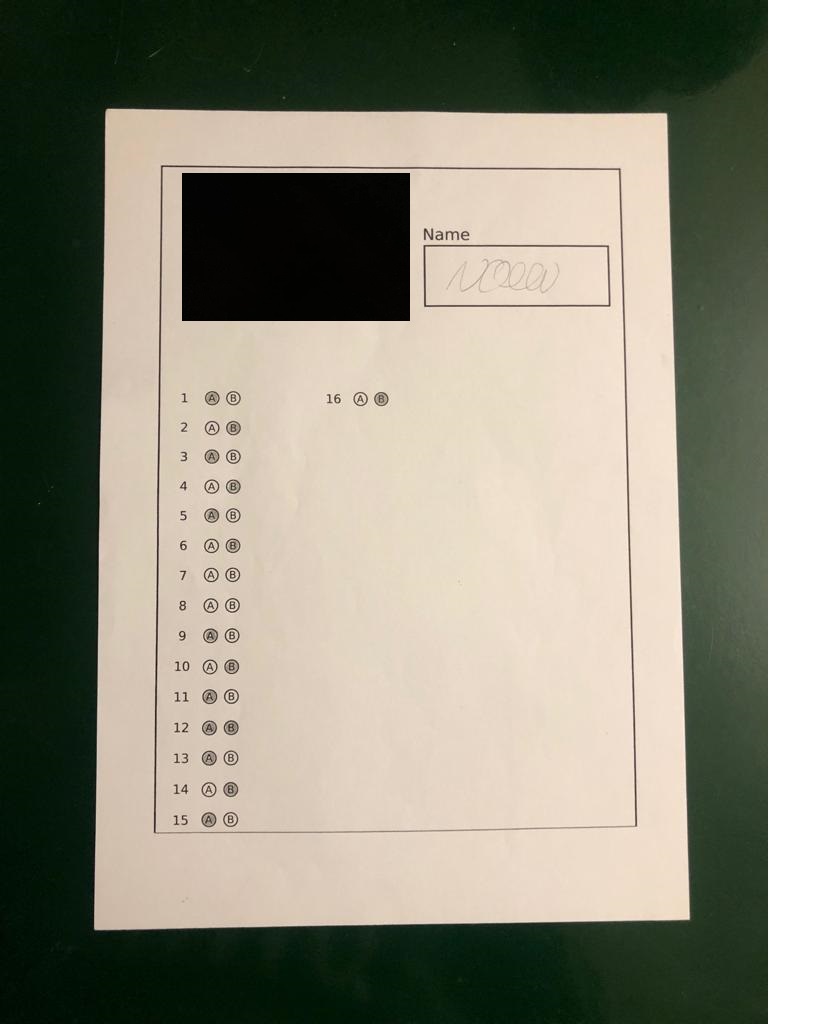 Name
1 A B 16 A B
2 A B
3 A B
4 A B
5 A B
6 A B
7 A B
8 A B
9 A B
10 A B
11 A B
12 A B
13 A B
14 A B
15 A B